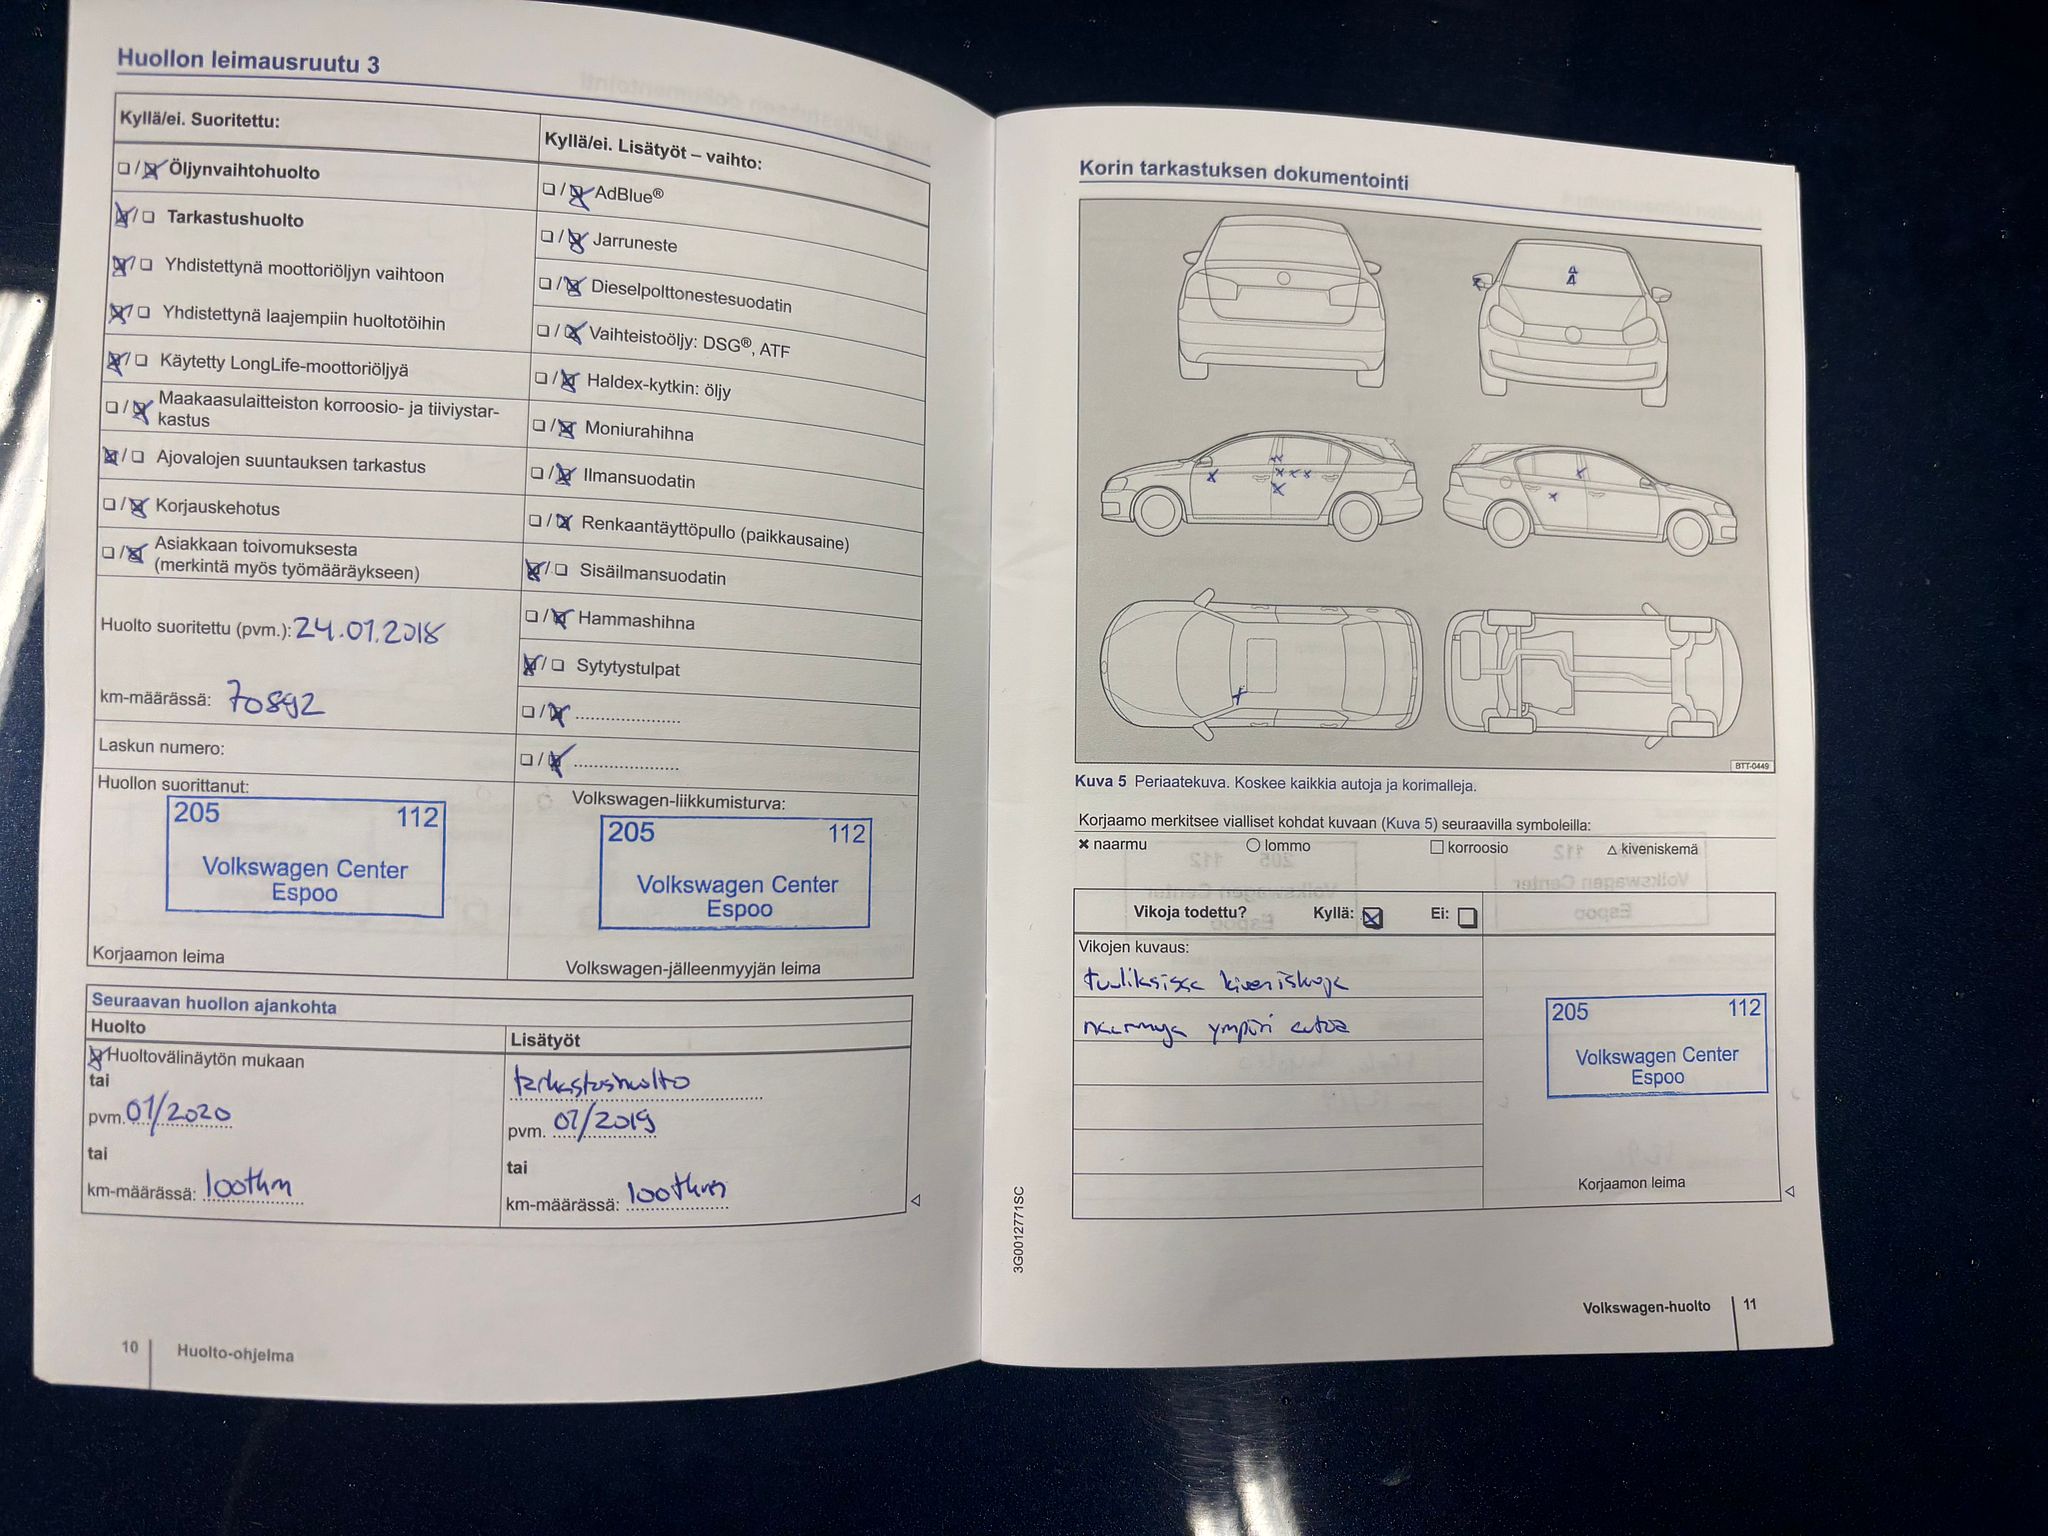 Huollon leimausruutu 3
Kyllä/ei. Suoritettu:
☐/☒ Öljynvaihtohuolto
☒/☐ Tarkastushuolto
☒/☐ Yhdistettynä moottoriöljyn vaihtoon
☒/☐ Yhdistettynä laajempiin huoltotöihin
☒/☐ Käytetty LongLife-moottoriöljyä
☐/☒ Maakaasulaitteiston korroosio- ja tiiviystar-
kastus
☒/☐ Ajovalojen suuntauksen tarkastus
☐/☒ Korjauskehotus
☐/☒ Asiakkaan toivomuksesta
(merkintä myös työmääräykseen)
Huolto suoritettu (pvm.): 24.01.2018
km-määrässä: 70892
Laskun numero:
Huollon suorittanut:
205 112
Volkswagen Center
Espoo
Korjaamon leima
Kyllä/ei. Lisätyöt – vaihto:
☐/☒ AdBlue®
☐/☒ Jarruneste
☐/☒ Dieselpolttonestesuodatin
☐/☒ Vaihteistoöljy: DSG®, ATF
☐/☒ Haldex-kytkin: öljy
☐/☒ Moniurahihna
☐/☒ Ilmansuodatin
☐/☒ Renkaantäyttöpullo (paikkausaine)
☒/☐ Sisäilmansuodatin
☐/☒ Hammashihna
☒/☐ Sytytystulpat
☐/☒ .....................
☐/☒ .....................
Volkswagen-liikkumisturva:
205 112
Volkswagen Center
Espoo
Volkswagen-jälleenmyyjän leima
Seuraavan huollon ajankohta
Huolto
☒ Huoltovälinäytön mukaan
tai
pvm. 01/2020
tai
km-määrässä: 100tkm
Lisätyöt
tarkastushuolto
pvm. 01/2019
tai
km-määrässä: 100tkm
10 Huolto-ohjelma
Korin tarkastuksen dokumentointi
BTT-0449
Kuva 5 Periaatekuva. Koskee kaikkia autoja ja korimalleja.
Korjaamo merkitsee vialliset kohdat kuvaan (Kuva 5) seuraavilla symboleilla:
✖ naarmu ○ lommo □ korroosio △ kiveniskemä
Vikoja todettu? Kyllä: ☒ Ei: ☐
Vikojen kuvaus:
tuulilasissa kiveniskuja
naarmuja ympäri autoa
205 112
Volkswagen Center
Espoo
Korjaamon leima
3G0012771SC
Volkswagen-huolto 11